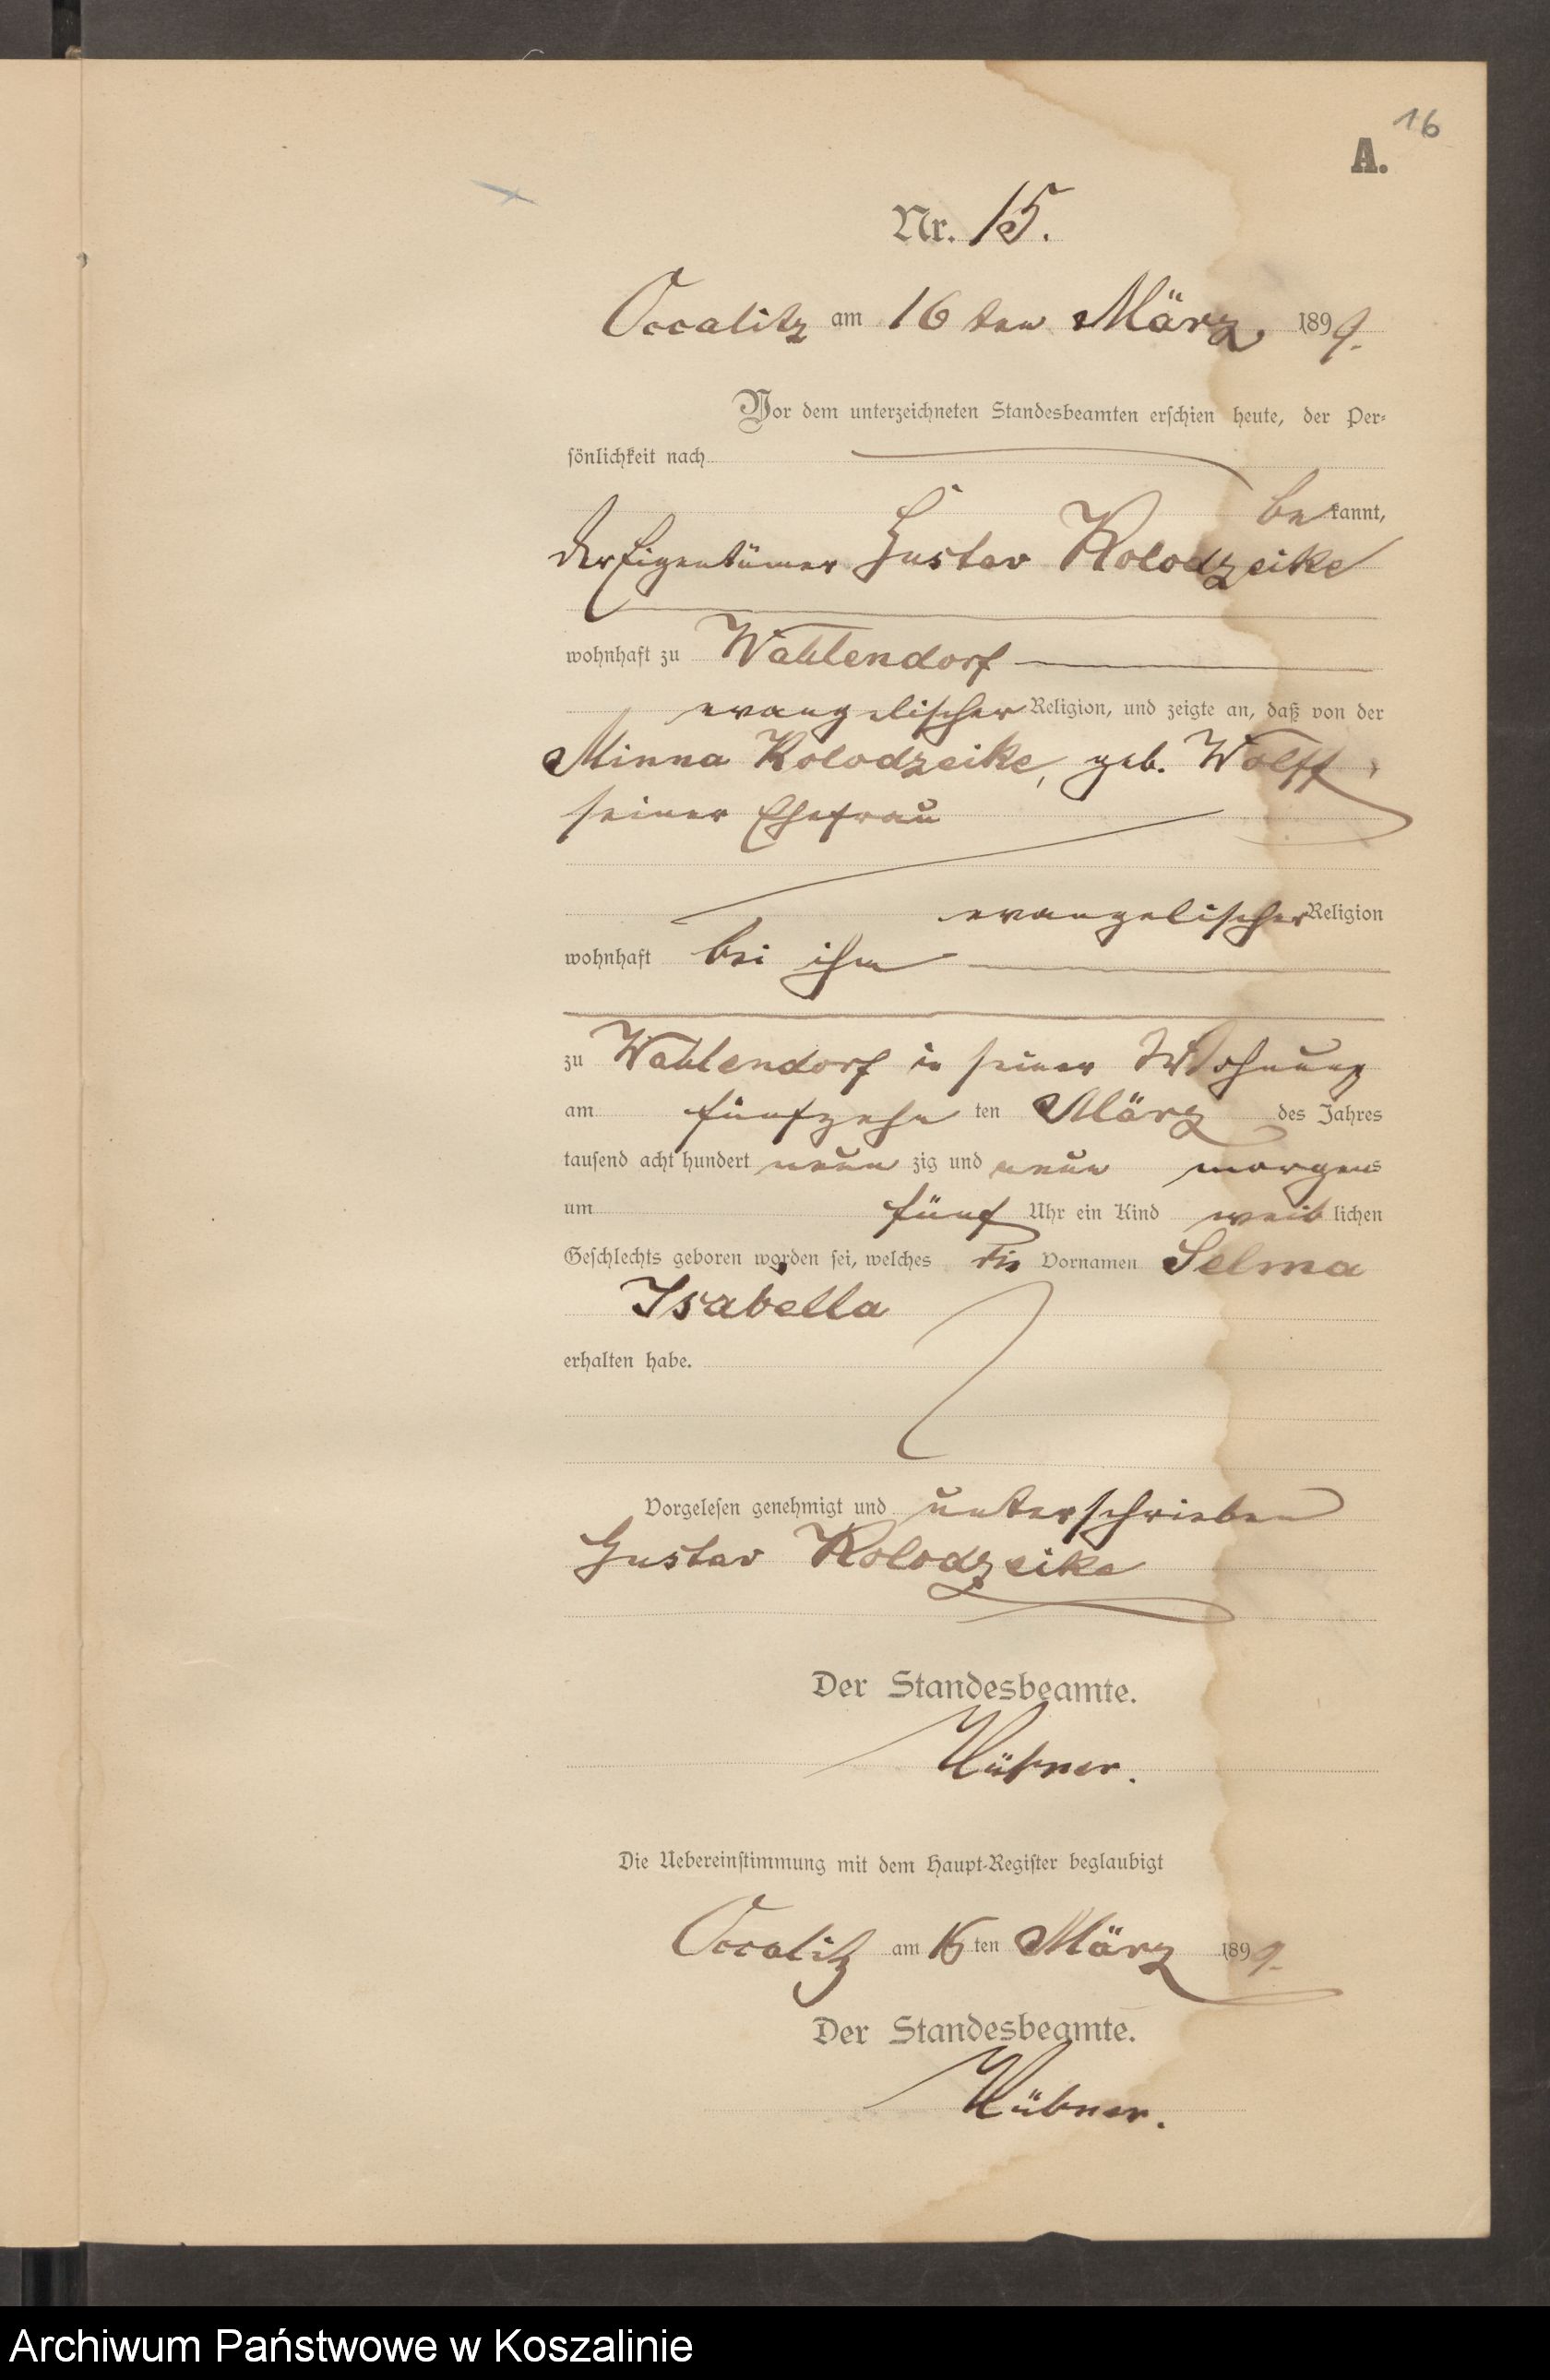 16
A.
Nr. 15.
Occalitz am 16 ten März 1899.
Vor dem unterzeichneten Standesbeamten erschien heute, der Per-
sönlichkeit nach
be kannt,
der Eigentümer Gustav Kolodzeike
wohnhaft zu Wahlendorf
evangelischer Religion, und zeigte an, daß von der
Minna Kolodzeike, geb. Wolff,
seiner Ehefrau
evangelischer Religion
wohnhaft bei ihm
zu Wahlendorf in seiner Wohnung
am fünfzehn ten März des Jahres
tausend acht hundert neun zig und neun morgens
um fünf Uhr ein Kind weib lichen
Geschlechts geboren worden sei, welches die Vornamen Selma
Isabella
erhalten habe.
Vorgelesen genehmigt und unterschrieben
Gustav Kolodzeike
Der Standesbeamte.
Hübner.
Die Uebereinstimmung mit dem Haupt-Register beglaubigt
Occalitz am 16 ten März 1899.
Der Standesbeamte.
Hübner.
Archiwum Państwowe w Koszalinie